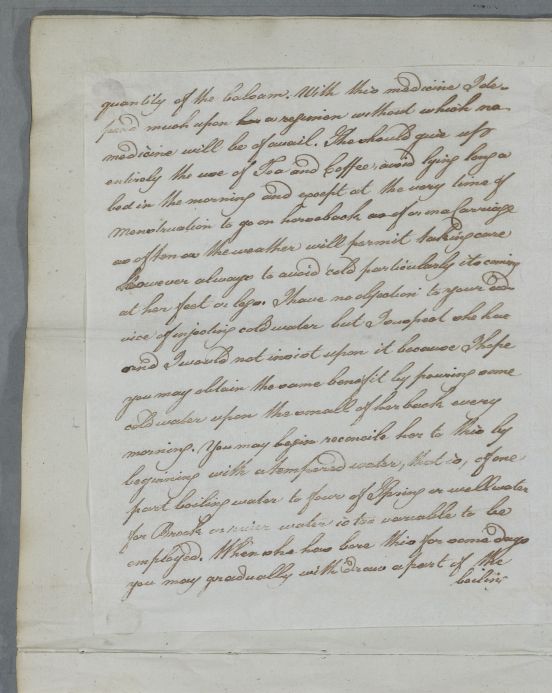 quantity of the balsam. With this medicine I de-
pend much upon her a regimen without which no
medicine will be of avail. She should give up
entirely the use of Tea and Coffee, avoid lying long a
bed in the morning and except at the very time of
menstruation to go on horseback or in a Carriage
as often as the weather will permit taking care
However always to avoid cold particularly its coming
at her feet or legs. I have no objection to your ad-
vice of injecting cold water but I suspect she has
and I would not insist upon it because I hope
you may obtain the same benefit by pouring some
cold water upon the small of her back every
morning. You may begin reconcile her to this by
beginning with a tempered water, that is, of one
part boiling water to four of Spring or well water
for Brook or river water is too variable to be
employed. When she has bore this for some days
you may gradually withdraw a part of the
boiling